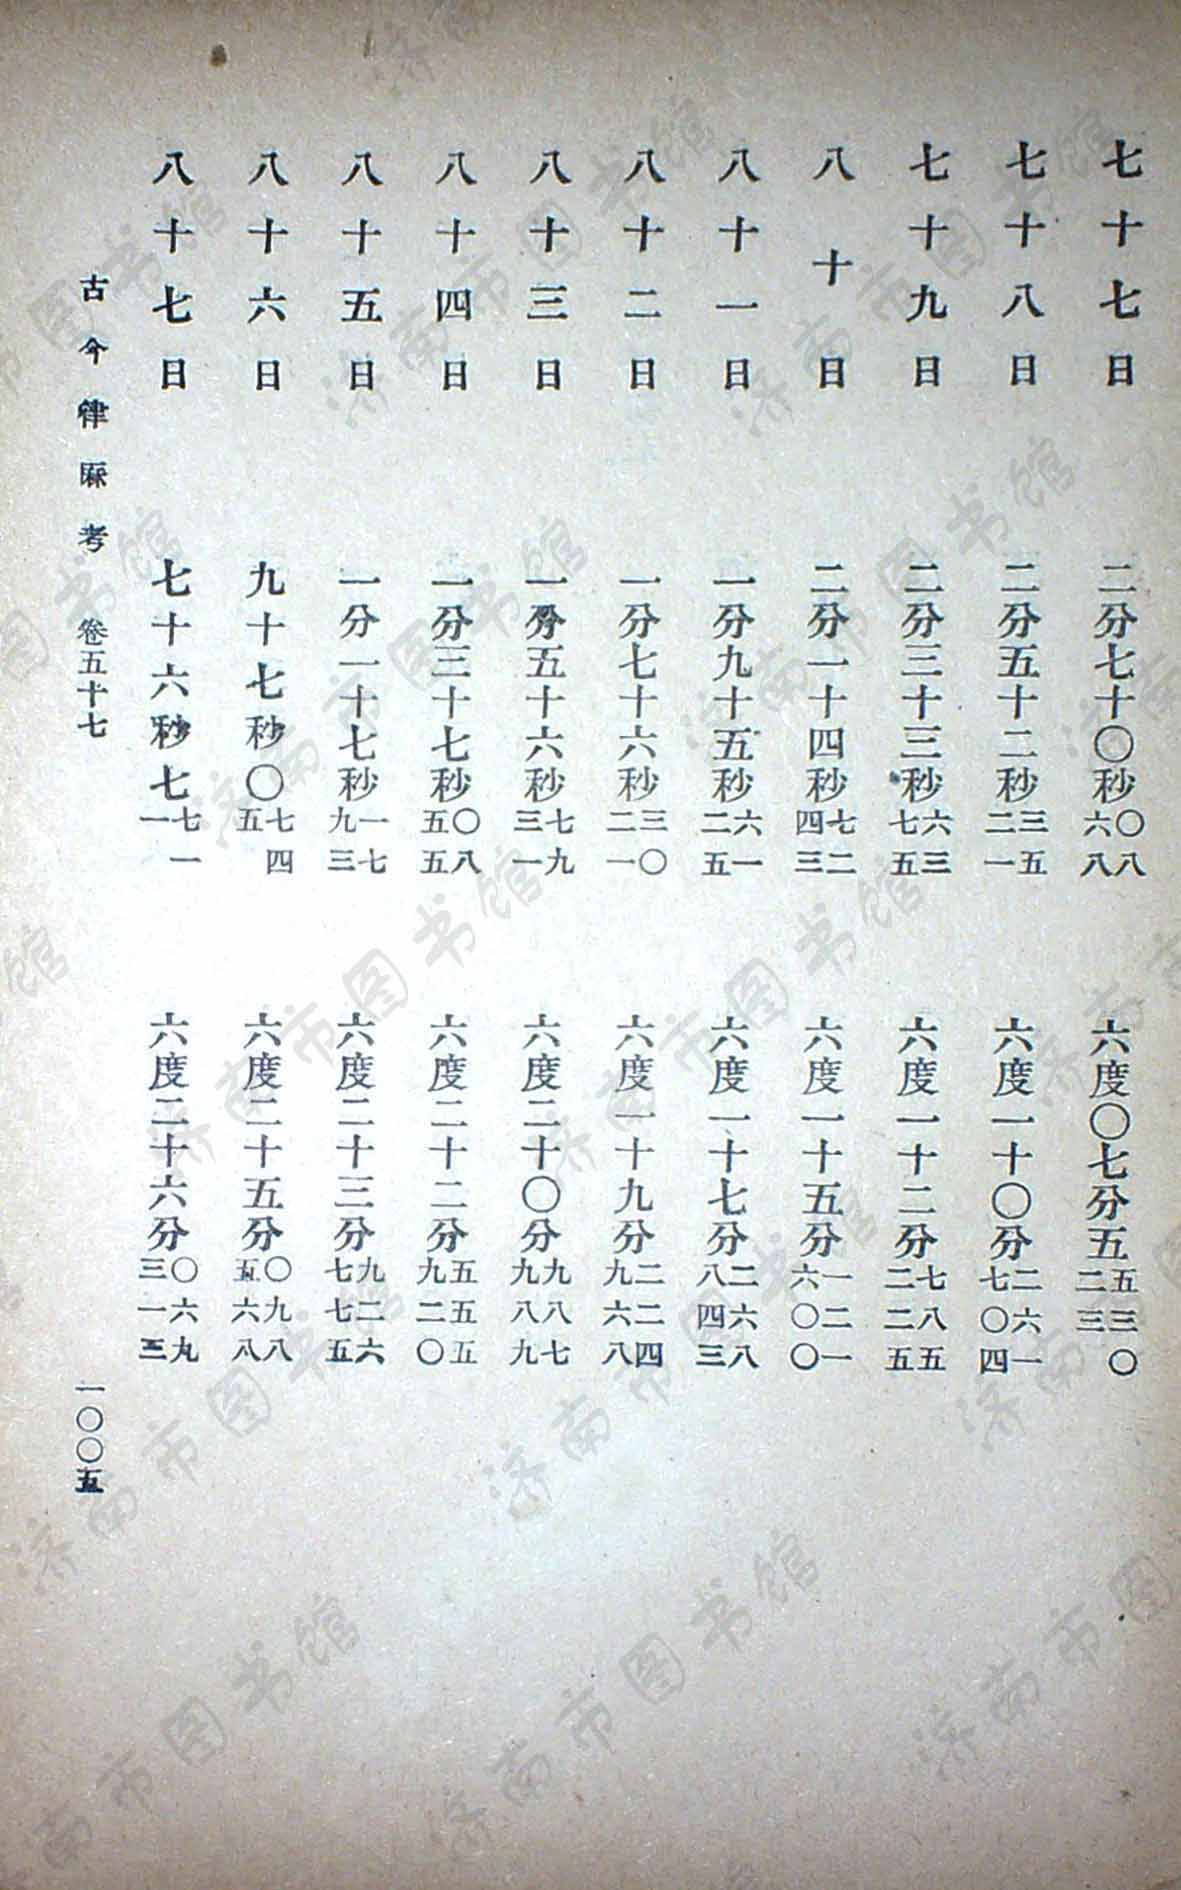 七十七日　二分七十〇秒〇八六八　六度〇七分五五三〇二三
七十八日　二分五十二秒三五二一　六度一十〇分二六一七〇四
七十九日　二分三十三秒六三七五　六度一十二分七八五二二五
八十日　二分一十四秒七二四三　六度一十五分一二一六〇〇
八十一日　一分九十五秒六一二五　六度一十七分二六八八四三
八十二日　一分七十六秒三〇二一　六度一十九分二二四九六八
八十三日　一分五十六秒七九三一　六度二十〇分九八七九八九
八十四日　一分三十七秒〇八五五　六度二十二分五五五九二〇
八十五日　一分一十七秒一七九三　六度二十三分九二六七七五
八十六日　九十七秒〇七四五　六度二十五分〇九八五六八
八十七日　七十六秒七七一一　六度二十六分〇六九三一三
古今律厤考　卷五十七　一〇〇五
济南市图书馆